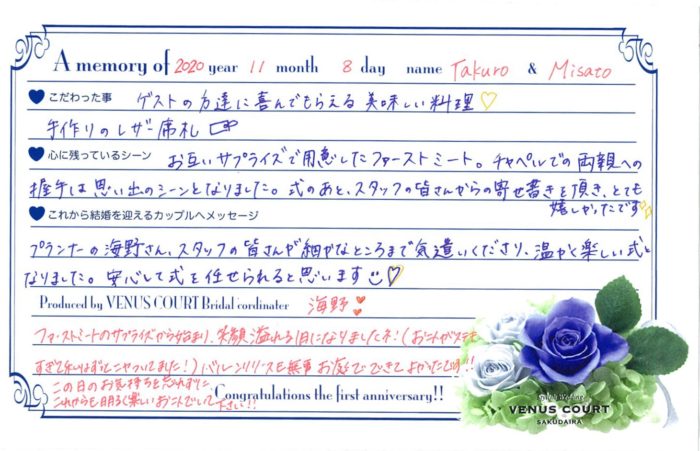 A memory of 2020 year 11 month 8 day name Takuro & Misato
こだわった事 ゲストの方達に喜んでもらえる美味しい料理♡
手作りのレザー席札
心に残っているシーン お互いサプライズで用意したファーストミート。チャペルでの両親への
握手は思い出のシーンとなりました。式のあと、スタッフの皆さんからの寄せ書きを頂き、とても
嬉しかったです
これから結婚を迎えるカップルへメッセージ
プランナーの海野さん、スタッフの皆さんが細かなところまで気遣いくださり、温かく楽しい式と
なりました。安心して式を任せられると思います
Produced by VENUS COURT Bridal cordinater 海野
ファーストミートのサプライズから始まり、笑顔溢れる1日になりましたネ!(お二人がステキ
すぎて私はずっとニヤついてました!)バルーンリリースも無事お庭でできてよかったです!!
この日のお気持ちを忘れずに、
これからも明るく楽しいお二人でいて下さい!!
Congratulations the first anniversary!!
VENUS COURT
SAKUDAIRA